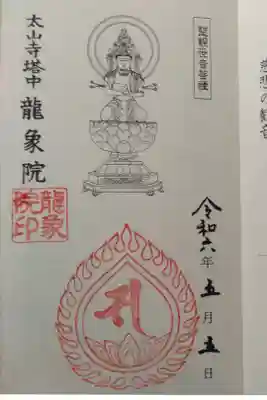 慈悲の観音
聖観世音菩薩
令和六年五月五日
太山寺塔中
龍象院
龍象院印